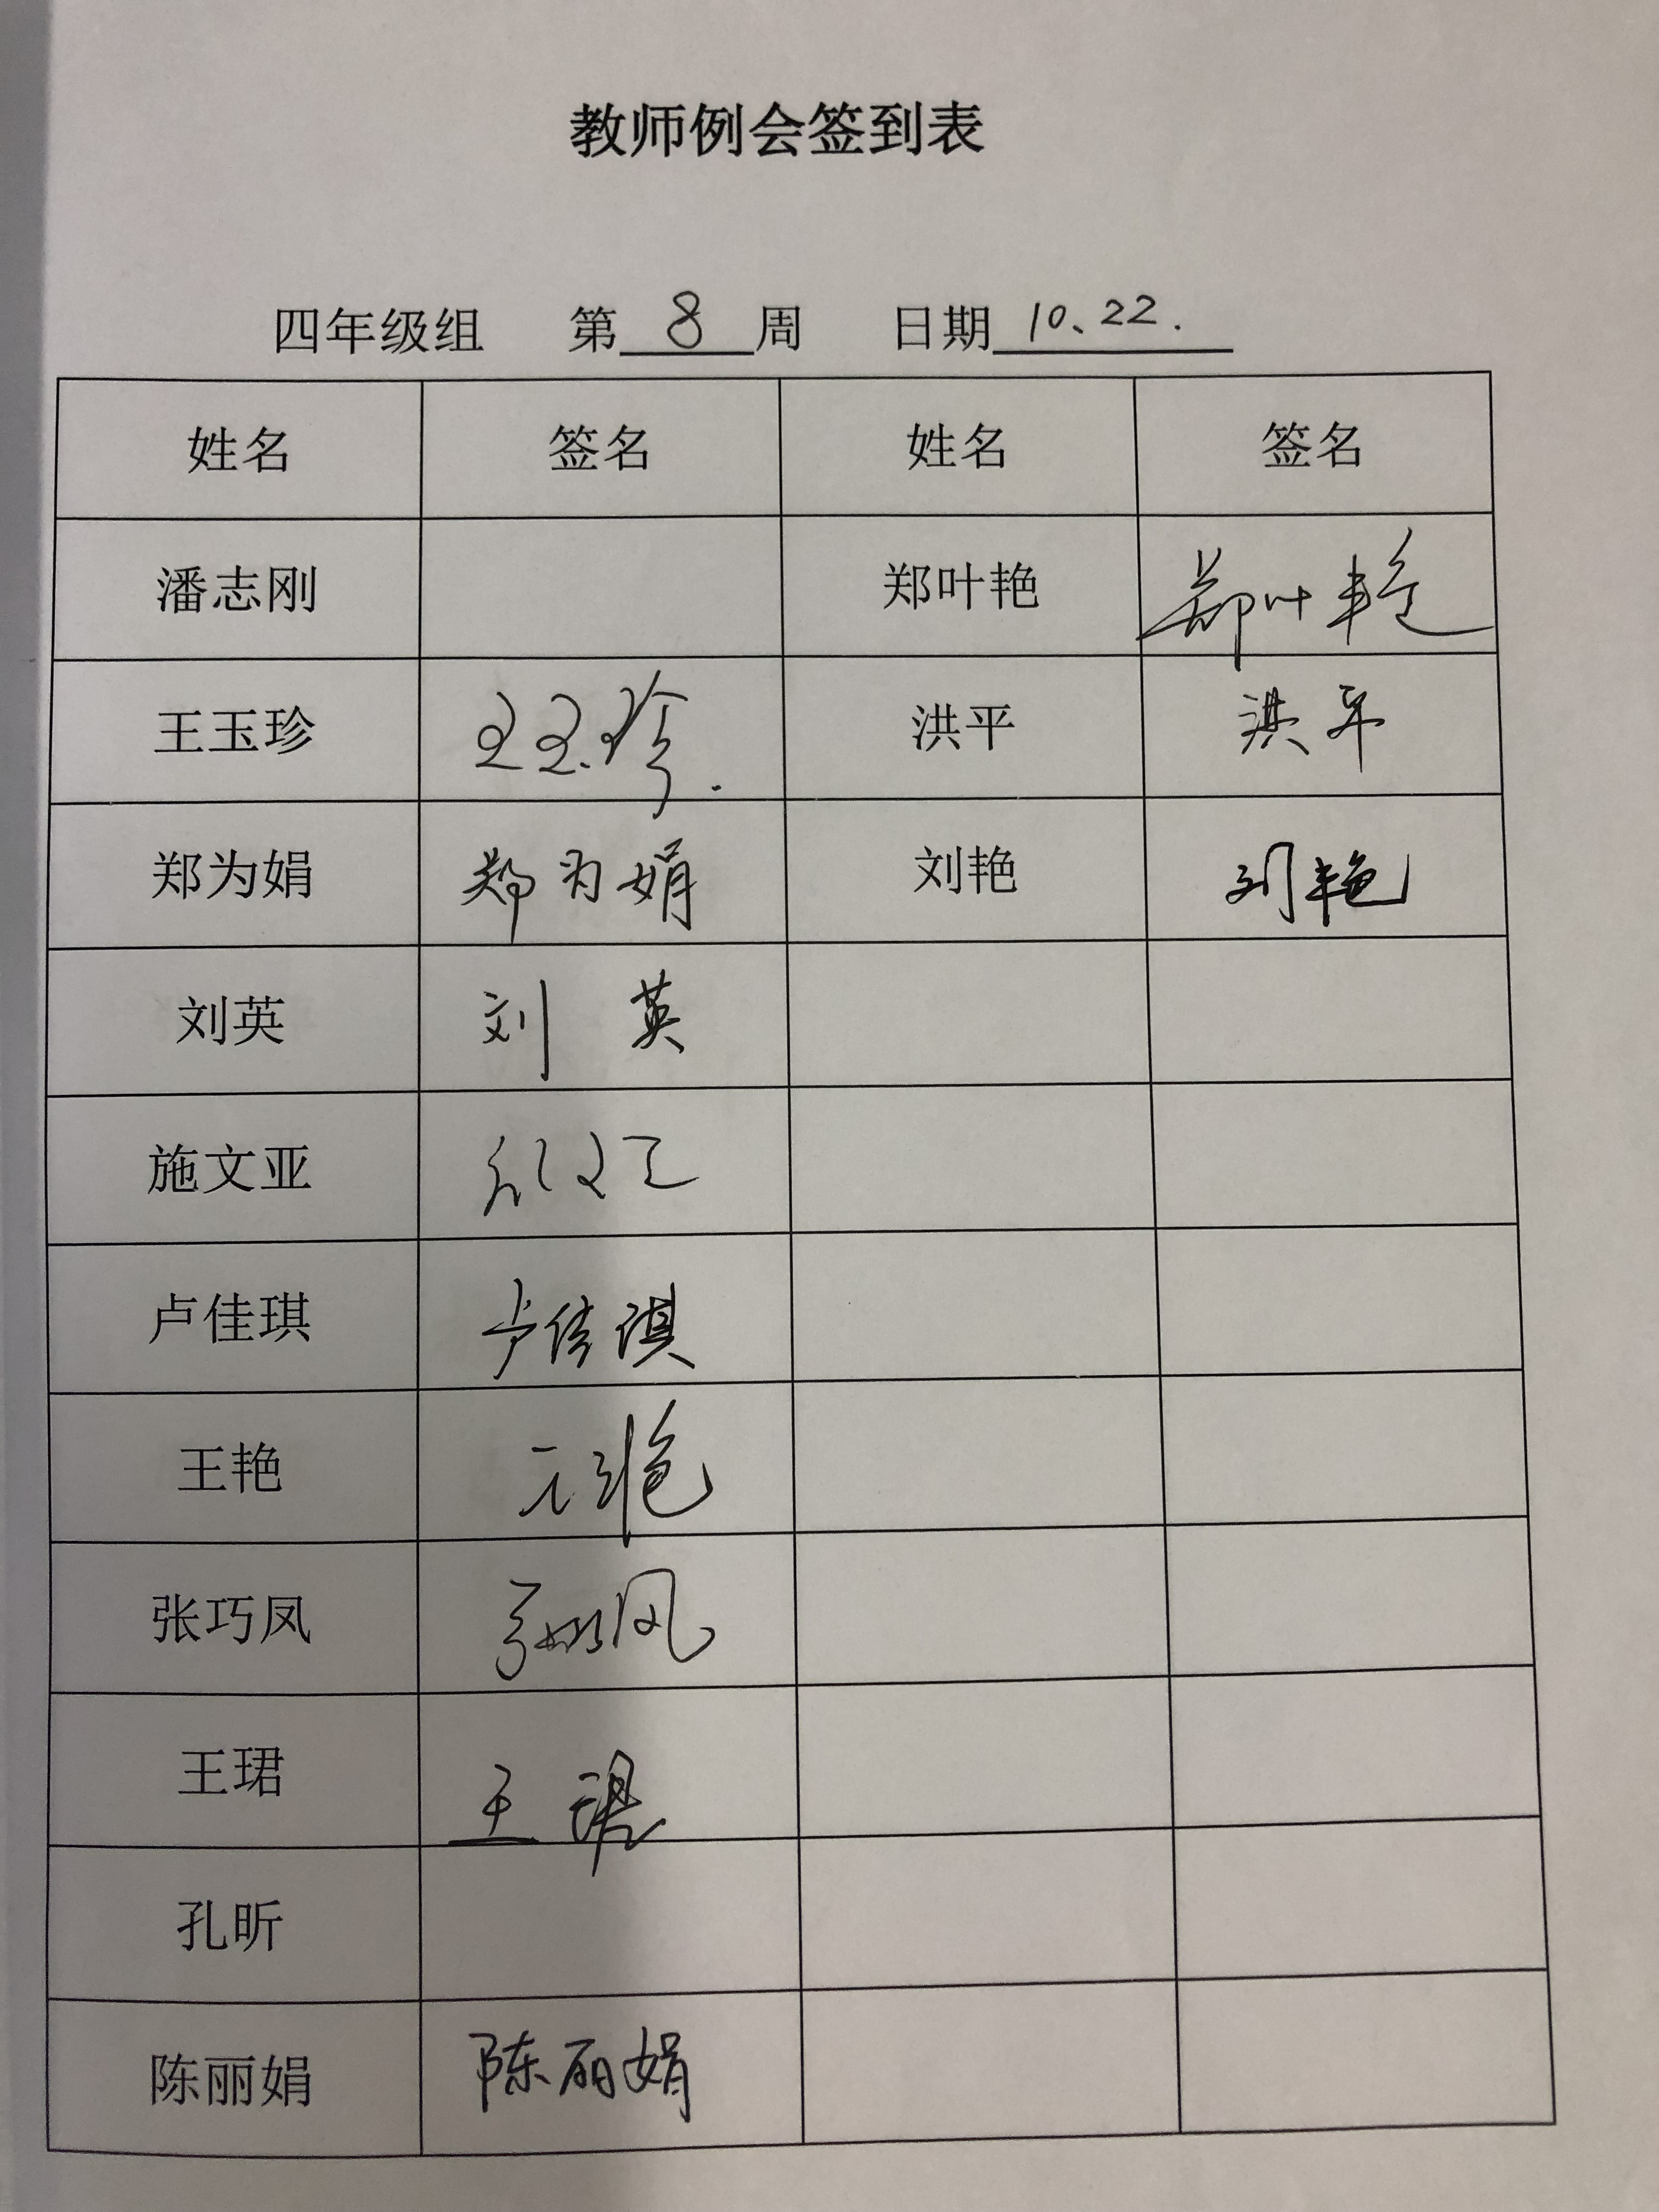 教师例会签到表
四年级组 第8周 日期10、22.
姓名 签名 姓名 签名
潘志刚 郑叶艳 郑叶艳
王玉珍 王玉珍. 洪平 洪平
郑为娟 郑为娟 刘艳 刘艳
刘英 刘英
施文亚 施文亚
卢佳琪 卢佳琪
王艳 王艳
张巧凤 张巧凤
王珺 王珺
孔昕
陈丽娟 陈丽娟